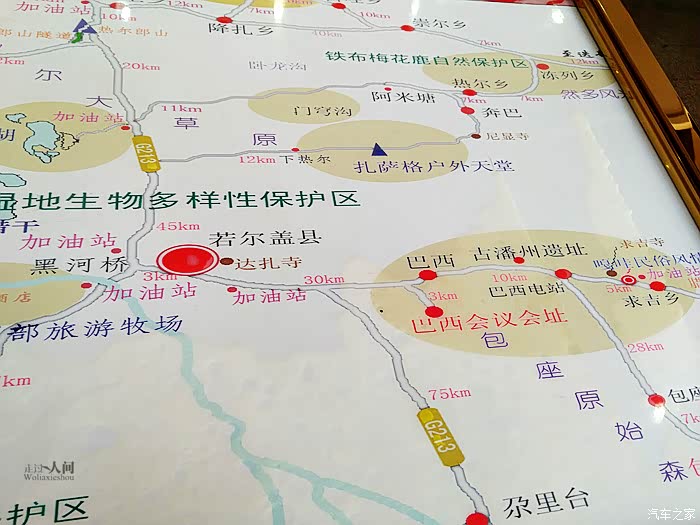 加油站
降扎乡
10km
崇尔乡
7km
郎山隧道
热尔郎山
2km
20km
卧龙沟
铁布梅花鹿自然保护区
12km
冻列乡
尔大草原
11km
门穹沟
阿米塘
热尔乡
7km
7km
奔巴
加油站
湖
G213
12km
下热尔
扎萨格户外天堂
尼显寺
湿地生物多样性保护区
45km
加油站
若尔盖县
黑河桥
3km
达扎寺
加油站
加油站
30km
酒店
巴西
古潘州遗址
10km
巴西电站
3km
巴西会议会址
求吉寺
加油站
5km
求吉乡
部旅游牧场
包座原始森
28km
包座
75km
G213
7km
尕里台
护区
走过人间
Woliaxieshou
汽车之家